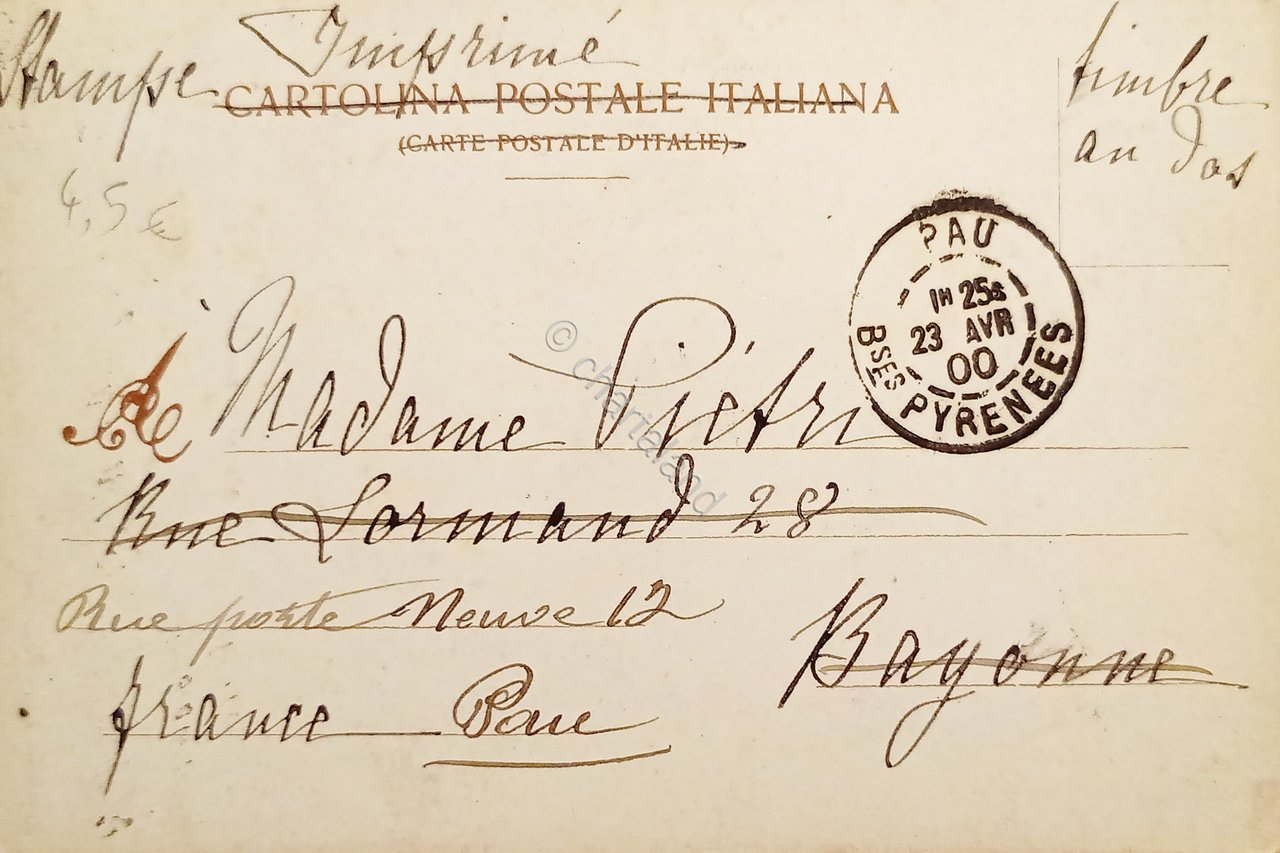 Stampe Imprimé
CARTOLINA POSTALE ITALIANA
(CARTE POSTALE D'ITALIE)
timbre
au dos
4,5 €
PAU
1H 25S
23 AVR
00
BSES PYRENEES
A Madame Piétri
Rue Lormand 28
Rue porte Neuve 12
Bayonne
france Pau
© chartaland